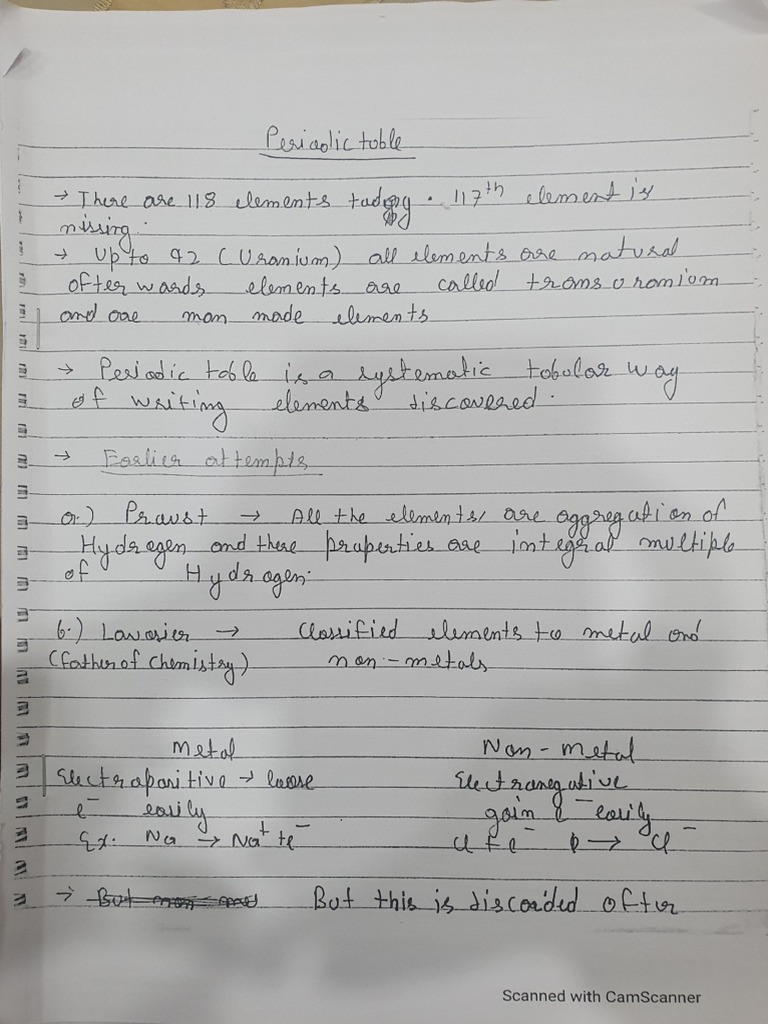 Periodic table
→ There are 118 elements today. 117th element is
missing.
→ Up to 92 (Uranium) all elements are natural
afterwards elements are called transuranium
and are man made elements
→ Periodic table is a systematic tabular way
of writing elements discovered.
→ Earlier attempts
a.) Praust → All the elements are aggregation of
Hydrogen and there properties are integral multiple
of Hydrogen.
b.) Lavosier → Classified elements to metal and
(father of Chemistry) non-metals
Metal Non-metal
Electropositive → loose Electronegative
e⁻ easily gain e⁻ easily
Ex. Na → Na⁺ + e⁻ Cl + e⁻ → Cl⁻
→ But this is discarded after
Scanned with CamScanner